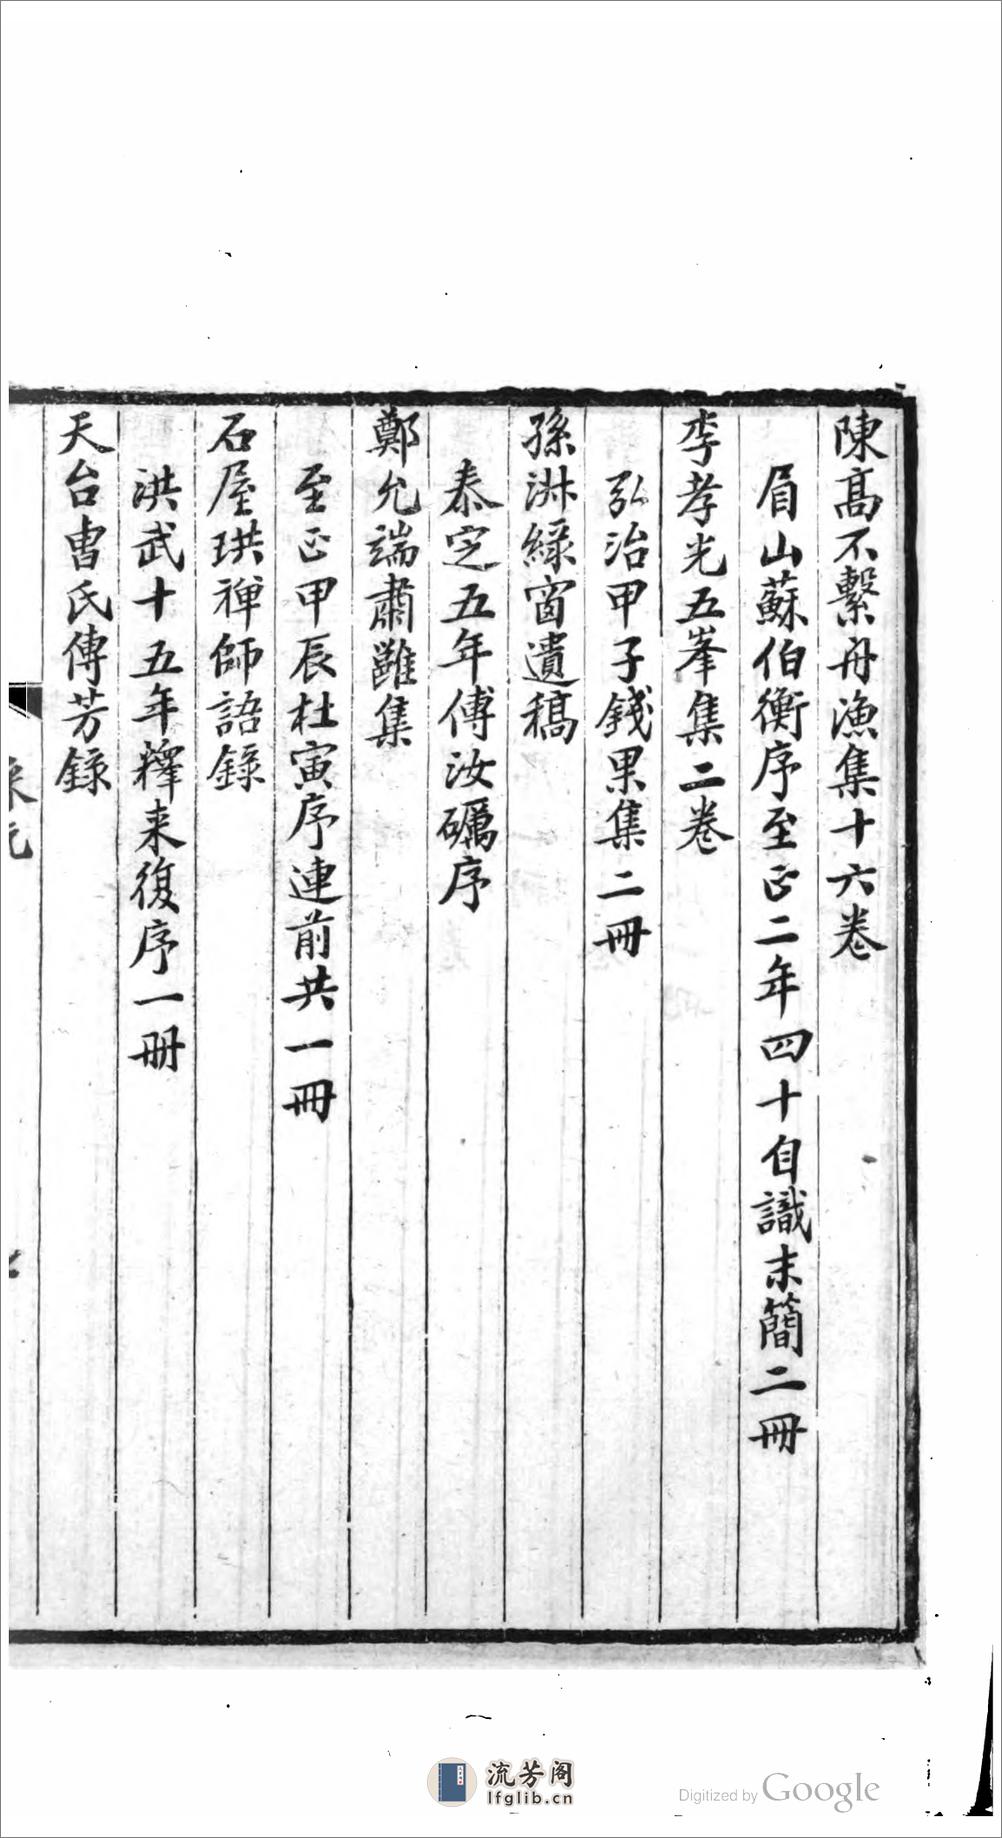 陳髙不繫舟漁集十六卷
眉山蘇伯衡序至正二年四十自識末簡二冊
李孝光五峯集二卷
弘治甲子錢杲集二冊
孫淋緑窗遺稿
泰定五年傅汝礪序
鄭允端肅雝集
至正甲辰杜寅序連前共一冊
石屋珙禅師語錄
洪武十五年釋来復序一册
天台曺氏傳芳錄
流芳阁
lfglib.cn
Digitized by Google